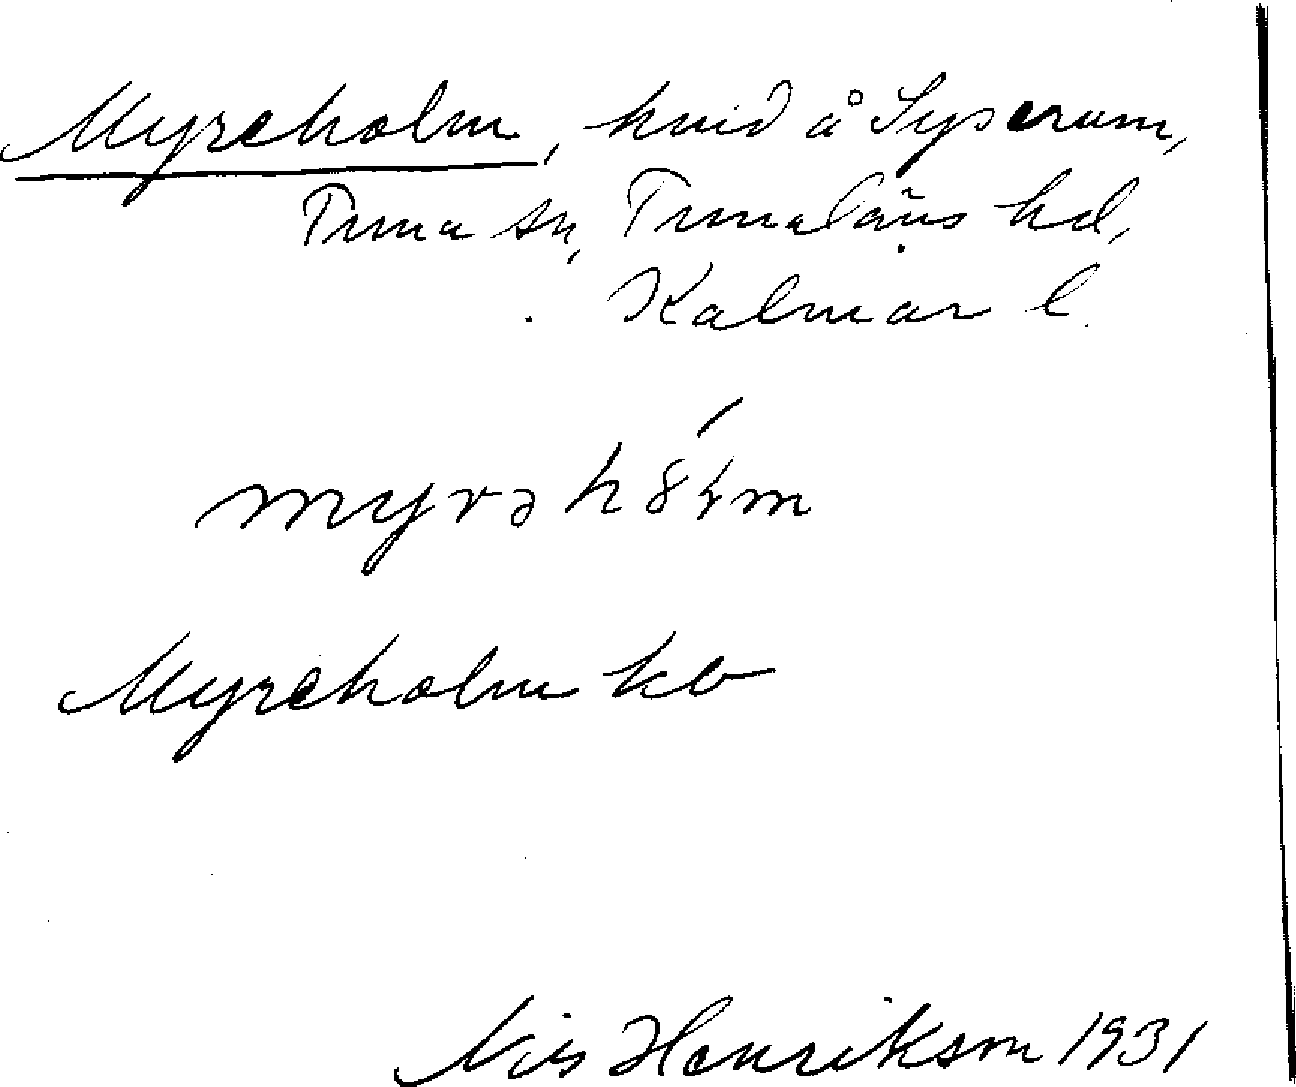 Myreholm, hmd å Syserum,
Tuna sn, Tunaläns hd,
Kalmar l.
myrəhȣ́ɬm
Myreholm kb
Nils Henrikson 1931